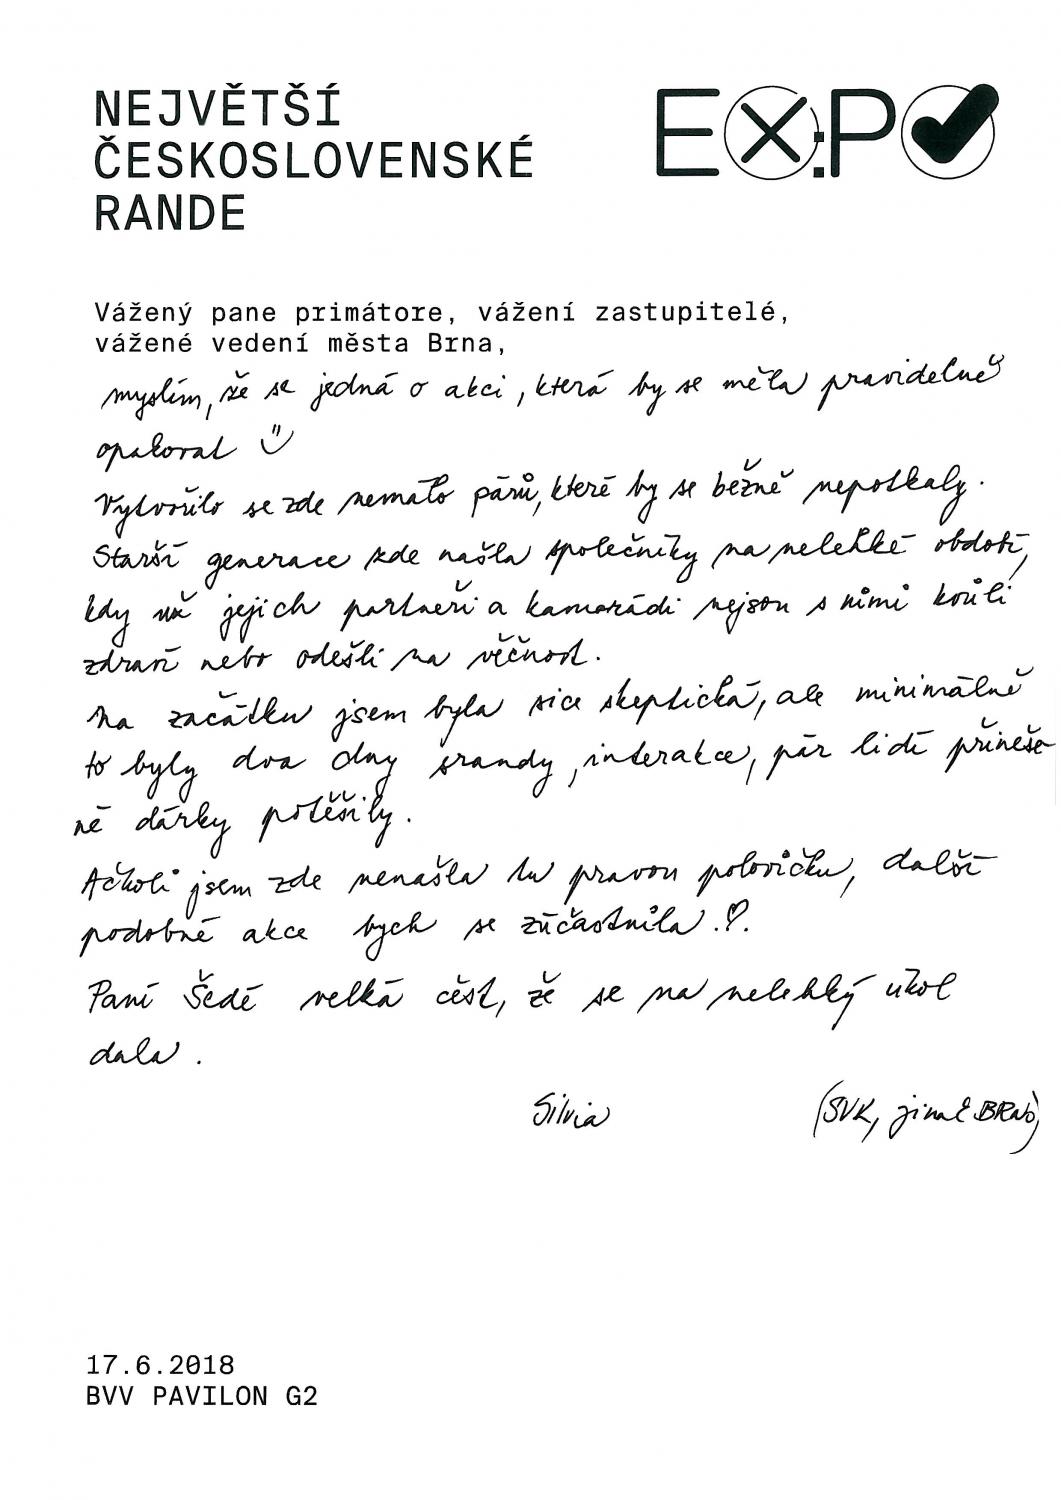 NEJVĚTŠÍ
ČESKOSLOVENSKÉ
RANDE
EX:PO
Vážený pane primátore, vážení zastupitelé,
vážené vedení města Brna,
myslím, že se jedná o akci, která by se měla pravidelně
opakovat
Vytvořilo se zde nemálo párů, které by se bežně nepotkaly.
Starší generace zde našla společníky na nelehké období,
kdy už jejich partneři a kamarádi nejsou s nimi kůli
zdraví nebo odešli na věčnost.
Na začátku jsem byla sice skeptická, ale minimálně
to byly dva dny srandy, interakce, pár lidí přineše-
né dárky potěšily.
Ačkoli jsem zde nenašla tu pravou polovičku, další
podobné akce bych se zúčastnila.♡.
Paní Šedé velká čest, že se na nelehký úkol
dala.
Silvia (SVK, jinak BRNO)
17.6.2018
BVV PAVILON G2